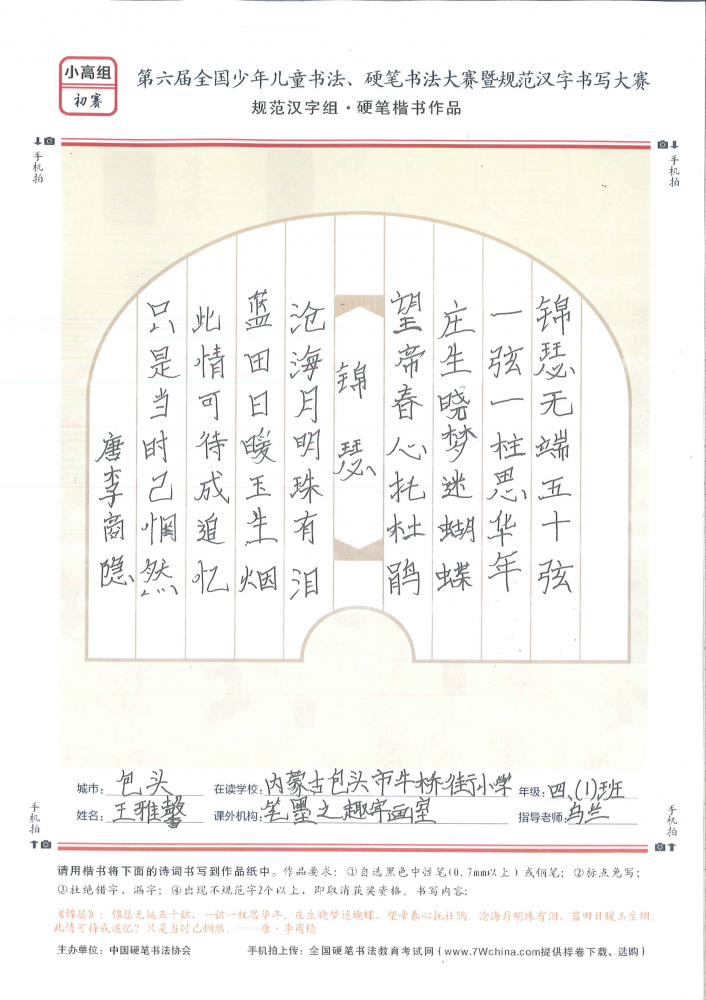 小高组
初赛
第六届全国少年儿童书法、硬笔书法大赛暨规范汉字书写大赛
规范汉字组·硬笔楷书作品
手机拍
手机拍
锦瑟无端五十弦
一弦一柱思华年
庄生晓梦迷蝴蝶
望帝春心托杜鹃
锦瑟
沧海月明珠有泪
蓝田日暖玉生烟
此情可待成追忆
只是当时已惘然
唐李商隐
城市：包头 在读学校：内蒙古包头市牛桥街小学 年级：四、(1)班
姓名：王雅馨 课外机构：笔墨之趣字画室 指导老师：乌兰
手机拍
手机拍
请用楷书将下面的诗词书写到作品纸中。作品要求：①自选黑色中性笔(0.7mm以上）或钢笔；②标点免写；
③杜绝错字、漏字；④出现不规范字2个以上，即取消获奖资格。书写内容：
《锦瑟》：锦瑟无端五十弦，一弦一柱思华年。庄生晓梦迷蝴蝶，望帝春心托杜鹃。沧海月明珠有泪，蓝田日暖玉生烟。
此情可待成追忆？只是当时已惘然。——唐·李商隐
主办单位：中国硬笔书法协会 手机拍上传：全国硬笔书法教育考试网（www.7Wchina.com提供样卷下载、选购）